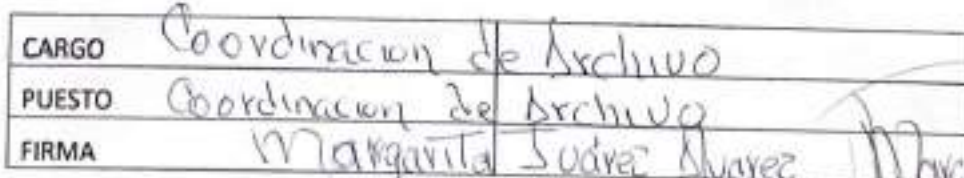 CARGO Coordinacion de Archivo
PUESTO Coordinacion de Archivo
FIRMA Margarita Juárez Juarez